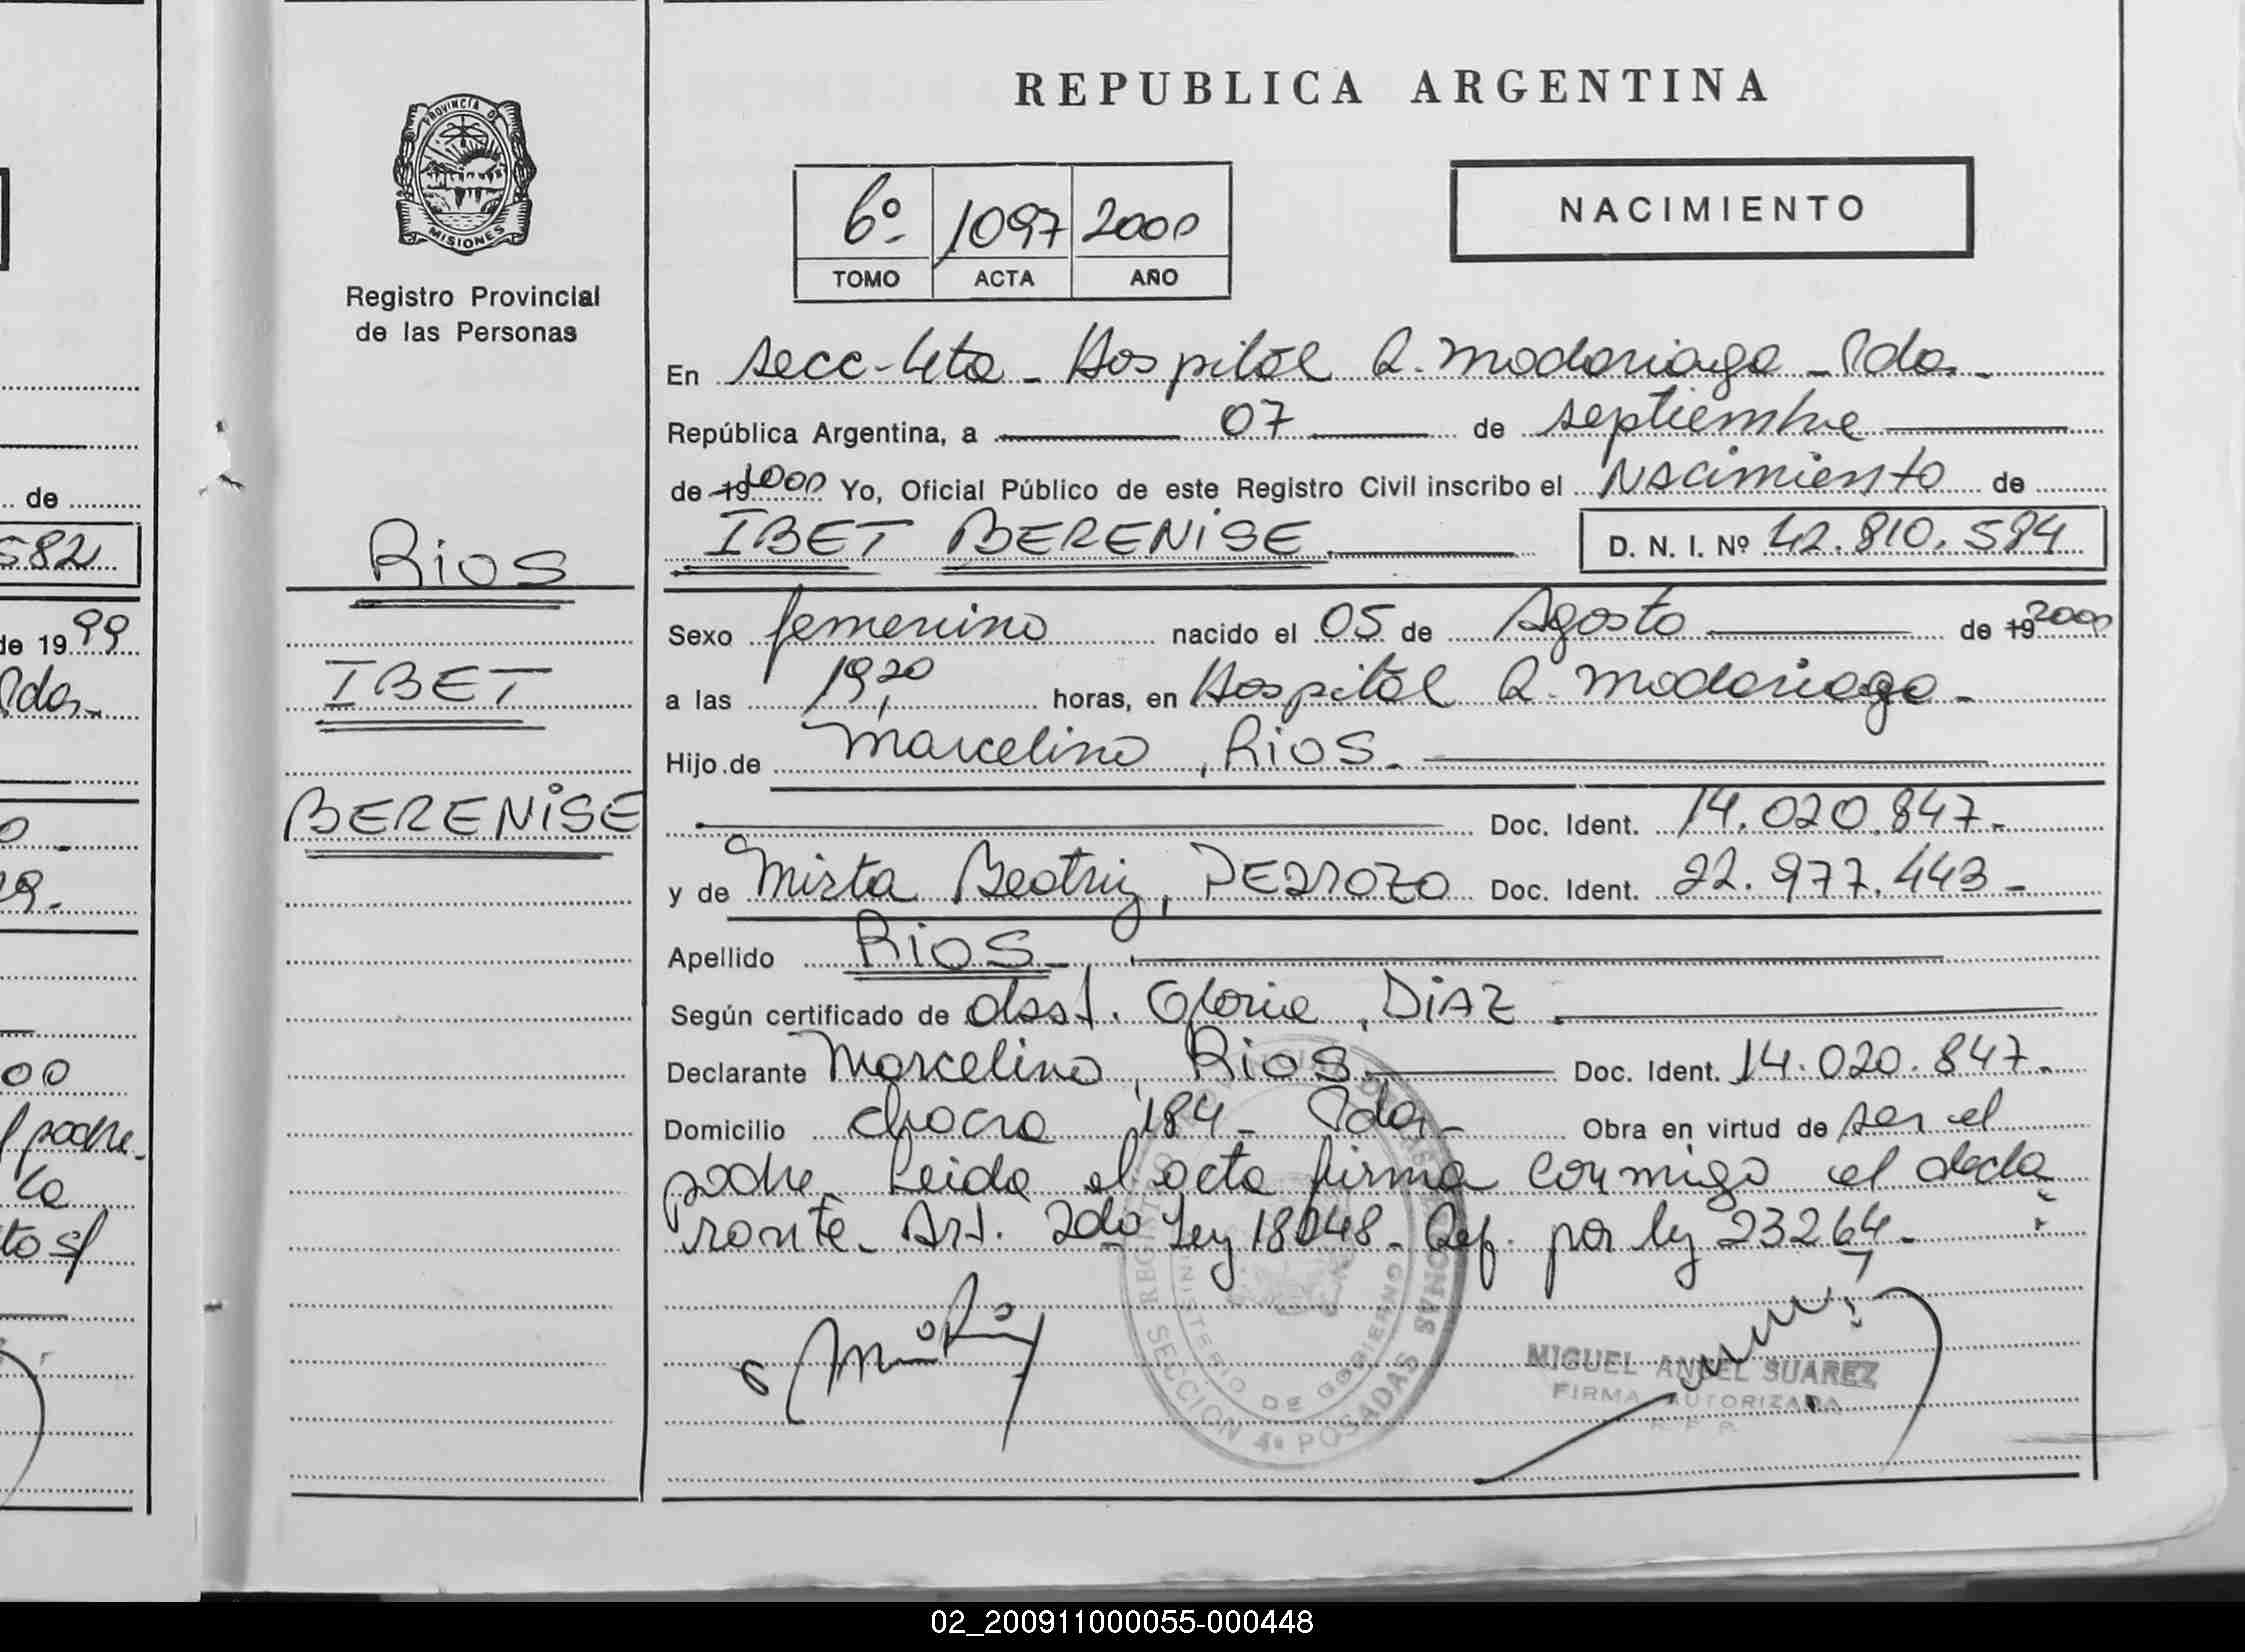 REPUBLICA ARGENTINA
PROVINCIA DE MISIONES
Registro Provincial
de las Personas
6º 1097 2000
TOMO ACTA AÑO
NACIMIENTO
En secc-4ta - Hospital R. Madariaga - Pdas.
República Argentina, a 07 de septiembre
de 19 2000 Yo, Oficial Público de este Registro Civil inscribo el Nacimiento de
IBET BERENISE. D. N. I. Nº 42.810.584
Sexo femenino nacido el 05 de Agosto de 19 2000
a las 19,20 horas, en Hospital R. Madariaga -
Hijo de Marcelino, RIOS.
Doc. Ident. 14.020.847-
y de Mirta Beatriz, PEDROZO Doc. Ident. 22.977.443-
Apellido RIOS-
Según certificado de obst. Gloria, DIAZ.
Declarante Marcelino, RIOS Doc. Ident. 14.020.847-
Domicilio chacra 184- Pdas- Obra en virtud de ser el
padre. Leida el acta firma conmigo el decla
rante- Art. 2do Ley 18248- Ref. por ley 23264-
RIOS
IBET
BERENISE
REGISTRO PERSONAS
MINISTERIO DE GOBIERNO
SECCION 4ª POSADAS
MIGUEL ANGEL SUAREZ
FIRMA AUTORIZADA
R. P. P.
de
582
de 19 99
Pdas-
00
padre-
la
to s/
02_200911000055-000448